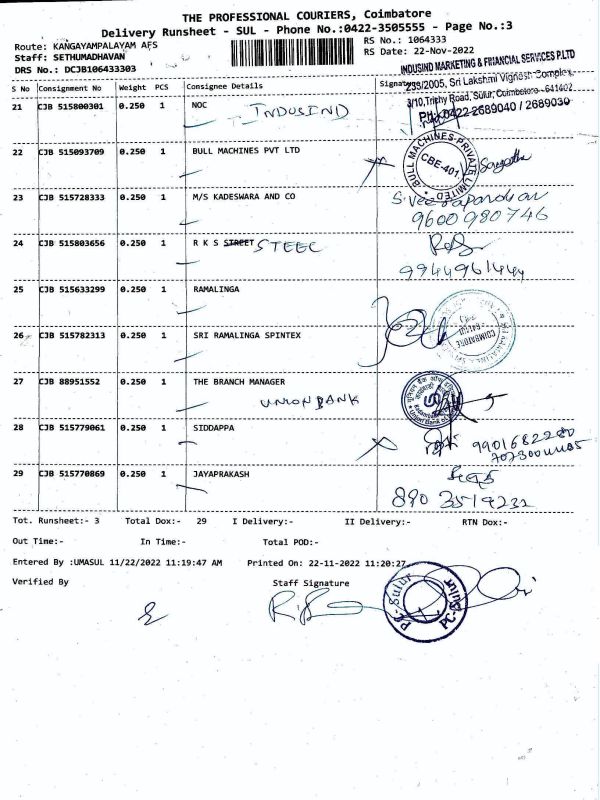 THE PROFESSIONAL COURIERS, Coimbatore
Delivery Runsheet - SUL - Phone No.:0422-3505555 - Page No.:3
Route: KANGAYAMPALAYAM AFS
RS No.: 1064333
Staff: SETHUMADHAVAN
RS Date: 22-Nov-2022
DRS No.: DCJB106433303
INDUSIND MARKETING & FINANCIAL SERVICES P.LTD
S No Consignment No Weight PCS Consignee Details Signature
239/2005, Sri Lakshmi Vignesh Complex,
3/10, Trichy Road, Sulur, Coimbatore - 641402
Ph: 0422-2689040 / 2689030
21 CJB 515800301 0.250 1 NOC
INDUSIND
22 CJB 515093709 0.250 1 BULL MACHINES PVT LTD
BULL MACHINES PRIVATE LIMITED
CBE-401
23 CJB 515728333 0.250 1 M/S KADESWARA AND CO
9600980746
24 CJB 515803656 0.250 1 R K S STREET STEEL
9944961444
25 CJB 515633299 0.250 1 RAMALINGA
26 CJB 515782313 0.250 1 SRI RAMALINGA SPINTEX
COIMBATORE
27 CJB 88951552 0.250 1 THE BRANCH MANAGER
UNION BANK
28 CJB 515779061 0.250 1 SIDDAPPA
29 CJB 515770869 0.250 1 JAYAPRAKASH
890 3519232
Tot. Runsheet:- 3 Total Dox:- 29 I Delivery:- II Delivery:- RTN Dox:-
Out Time:- In Time:- Total POD:-
Entered By :UMASUL 11/22/2022 11:19:47 AM Printed On: 22-11-2022 11:20:27
Verified By Staff Signature
PC-Sulur
PC-Sulur